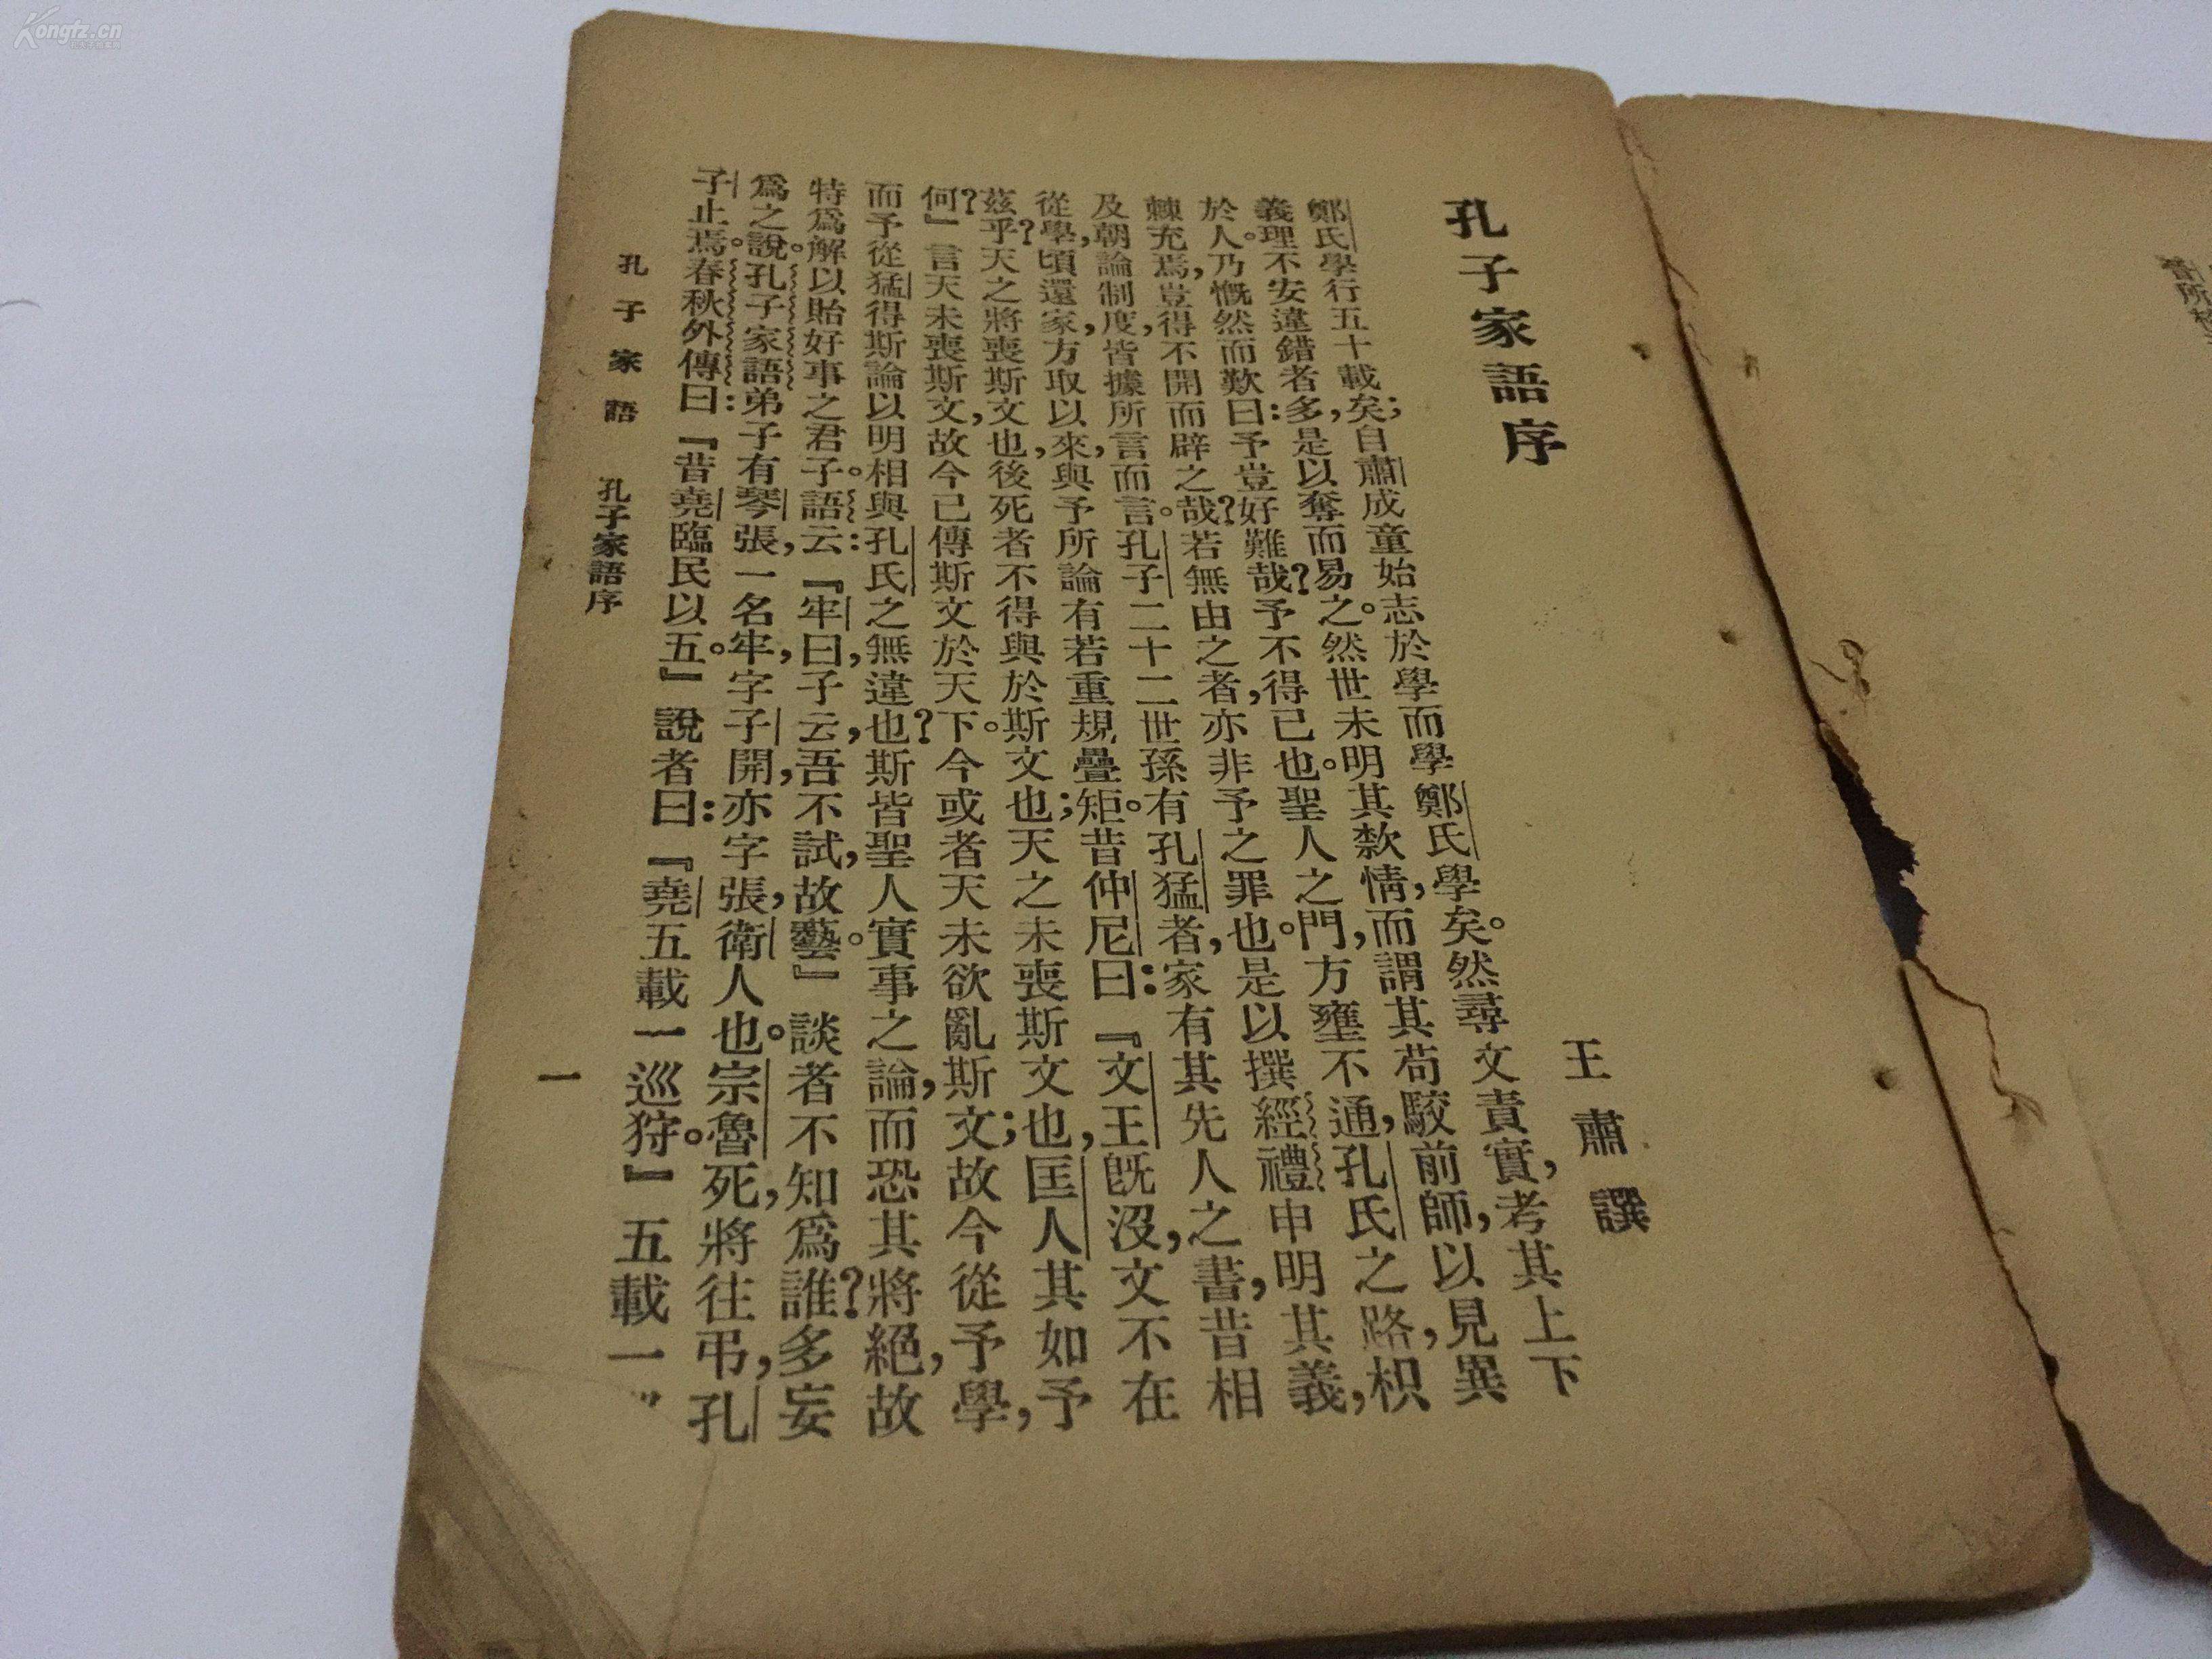 孔子家語序
王肅譔
鄭氏學行五十載矣;自肅成童始志於學而學鄭氏學矣。然尋文責實,考其上下
義理不安違錯者多,是以奪而易之。然世未明其欵情,而謂其苟駮前師,以見異
於人。乃慨然而歎曰:予豈好難哉?予不得已也。聖人之門,方壅不通,孔氏之路,枳
棘充焉,豈得不開而辟之哉?若無由之者,亦非予之罪也。是以撰經禮申明其義,
及朝論制度,皆據所言而言。孔子二十二世孫有孔猛者,家有其先人之書,昔相
從學,頃還家,方取以來,與予所論有若重規疊矩。昔仲尼曰:『文王旣沒,文不在
茲乎?天之將喪斯文也,後死者不得與於斯文也;天之未喪斯文也,匡人其如予
何?』言天未喪斯文,故今已傳斯文於天下。今或者天未欲亂斯文;故今從予學,
而予從猛得斯論以明相與孔氏之無違也?斯皆聖人實事之論,而恐其將絕,故
特爲解以貽好事之君子。語云:『牢曰,子云,吾不試,故藝。』談者不知爲誰?多妄
爲之說。孔子家語弟子有琴張,一名牢,字子開,亦字張,衛人也。宗魯死,將往弔,孔
子止焉。春秋外傳曰:『昔堯臨民以五。』說者曰:『堯五載一巡狩。』五載一
孔子家語 孔子家語序
一
Kongfz.cn